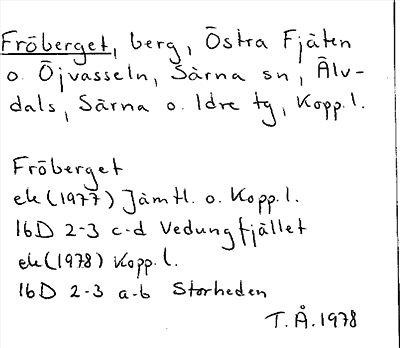 Fröberget, berg, Östra Fjäten
o. Öjvasseln, Särna sn, Älv-
dals, Särna o. Idre tg, Kopp.l.
Fröberget
ek(1977) Jämtl. o. Kopp.l.
16D 2-3 c-d Vedungfjället
ek(1978) Kopp.l.
16D 2-3 a-b Storheden
T.Å.1978